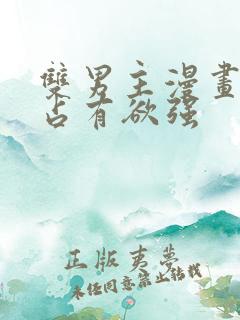 雙男主漫畫
占有欲强
正版夷夢
未经同意禁止转载